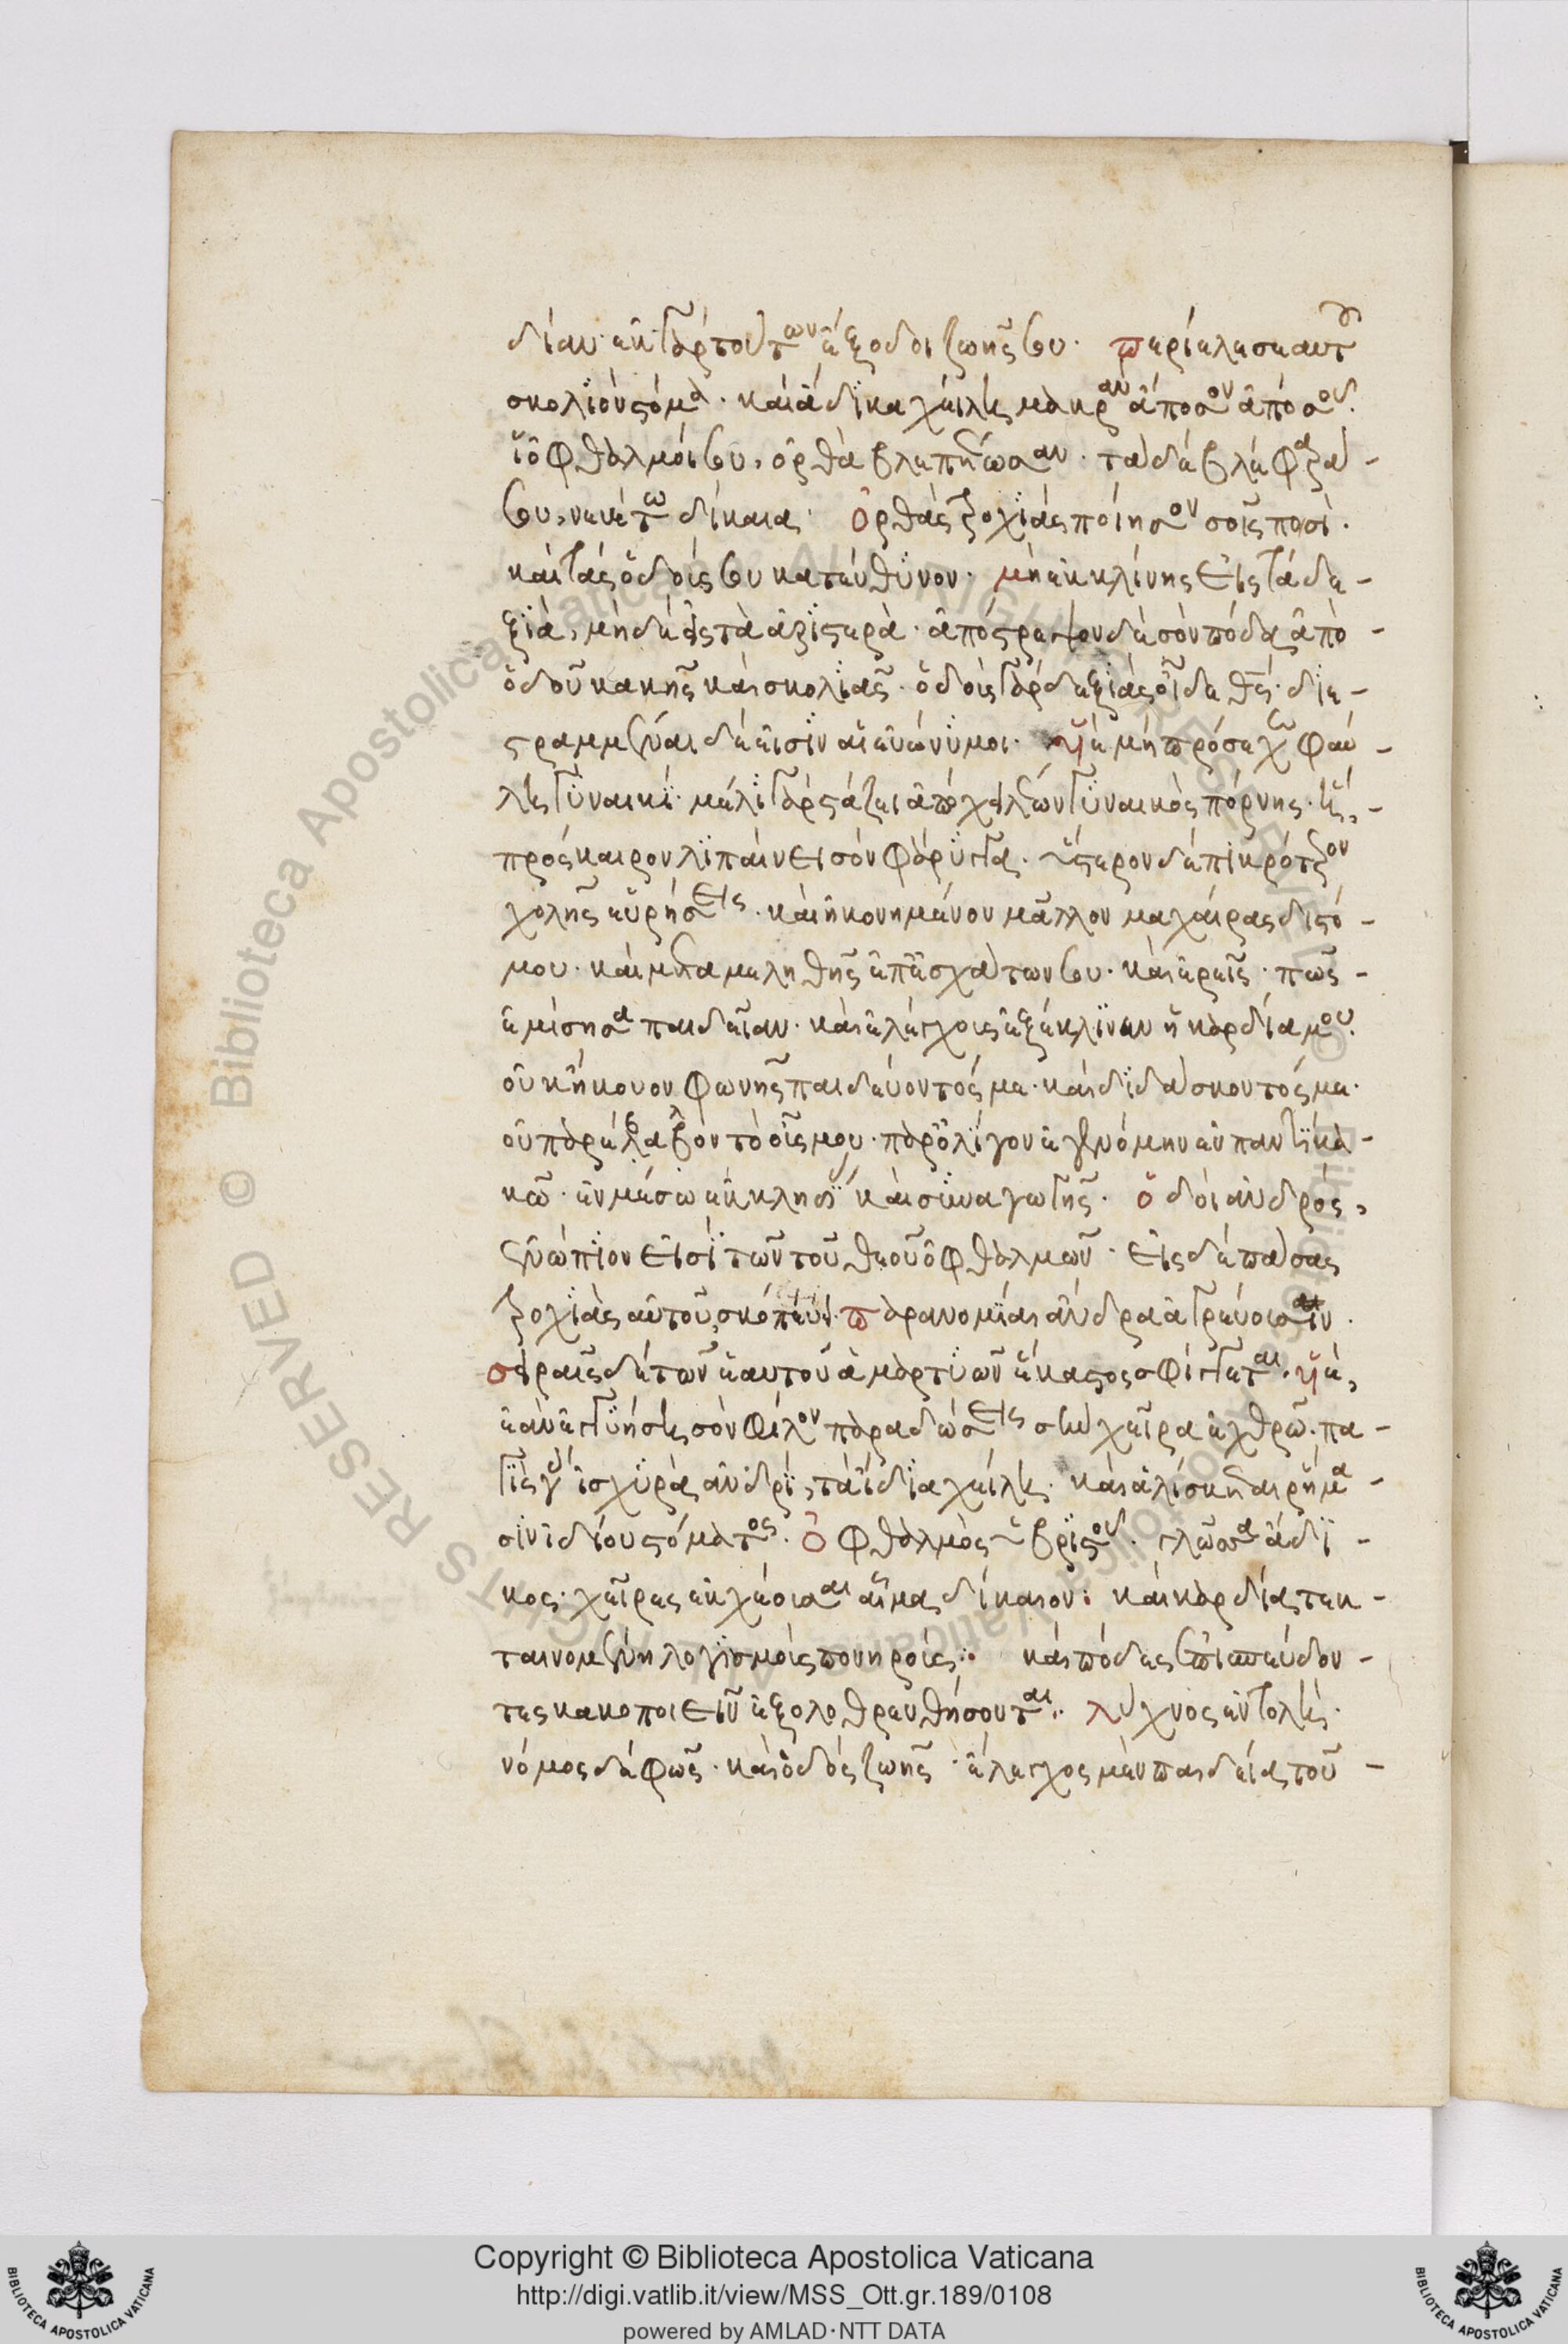 δίαν· ἐκ γὰρ τούτων ἔξοδοι ζωῆς σου· περίελε σεαυτοῦ
σκολιὸν στόμα· καὶ ἄδικα χείλη μακρὰν ἀπὸ σοῦ ἄπωσον·
οἱ ὀφθαλμοί σου, ὀρθὰ βλεπέτωσαν· τὰ δὲ βλέφαρα
σου, νευέτω δίκαια· Ὀρθὰς τροχιὰς ποίησον σοῖς ποσί·
καὶ τὰς ὁδούς σου κατεύθυνον· μὴ ἐκκλίνῃς εἰς τὰ δε-
ξιὰ, μηδὲ εἰς τὰ ἀριστερὰ· ἀπόστρεψον δὲ σὸν πόδα ἀπὸ-
ὁδοῦ κακῆς καὶ σκολιᾶς· ὁδοὺς γὰρ δεξιὰς οἶδε θς· διε-
στραμμέναι δέ εἰσιν αἱ εὐώνυμοι· Υἱὲ μὴ πρόσεχε φαύ-
λῃ γυναικί· μέλι γὰρ στάζει ἀπὸ χειλέων γυναικὸς πόρνης· ἣ,-
πρὸς καιρὸν λιπαίνει σὸν φάρυγγα· ὕστερον δὲ πικρότερον
χολῆς εὑρήσεις· καὶ ἠκονημένον μᾶλλον μαχαίρας διστό-
μου· καὶ μεταμεληθῇς ἐπ' ἐσχάτων σου· καὶ ἐρεῖς· πῶς-
ἐμίσησα παιδείαν· καὶ ἐλέγχους ἐξέκλινεν ἡ καρδία μου·
οὐκ ἤκουον φωνῆς παιδεύοντός με· καὶ διδάσκοντός με·
οὐ παρέβαλλον τὸ οὖς μου· παρ' ὀλίγον ἐγενόμην ἐν παντὶ κα-
κῷ· ἐν μέσῳ ἐκκλησίας καὶ συναγωγῆς· ὁδοὶ ἀνδρός,
ἐνώπιον εἰσὶ τῶν τοῦ θεοῦ ὀφθαλμῶν· εἰς δὲ πάσας
τροχιὰς αὐτοῦ, σκοπεύει· παρανομίαι ἄνδρα ἀγρεύουσιν·
σειραῖς δὲ τῶν ἑαυτοῦ ἁμαρτιῶν ἕκαστος σφίγγεται· υἱέ,
ἐὰν ἐγγυήσῃ σὸν φίλον παραδώσεις σὴν χεῖρα ἐχθρῷ· πα-
γὶς γὰρ ἰσχυρὰ ἀνδρὶ, τὰ ἴδια χείλη· καὶ ἁλίσκεται ῥήμα-
σιν ἰδίου στόματος· Ὀφθαλμὸς ὑβριστοῦ· γλῶσσα ἄδι-
κος· χεῖρες ἐκχέουσαι αἷμα δικαίου· καὶ καρδία τεκ-
ταινομένη λογισμοὺς πονηρούς· καὶ πόδες ἐπισπεύδον-
τες κακοποιεῖν ἐξολοθρευθήσονται· λύχνος ἐντολὴ·
νόμος δὲ φῶς· καὶ ὁδὸς ζωῆς· ἔλεγχος μὲν παιδείας τοῦ-
Copyright © Biblioteca Apostolica Vaticana
http://digi.vatlib.it/view/MSS_Ott.gr.189/0108
powered by AMLAD·NTT DATA